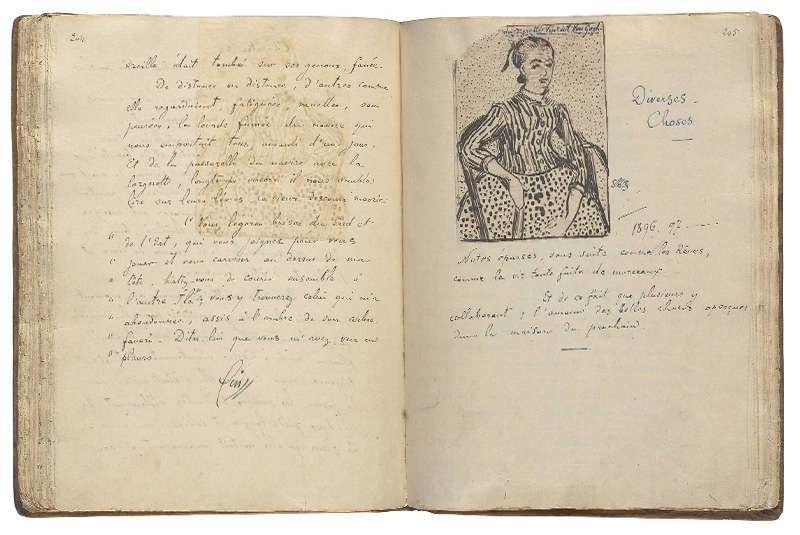 204
oreille était tombé sur ses genoux, fanée.
De distance en distance, d'autres comme
elle regardaient, fatiguées, muettes, sans
pensées, la lourde fumée du navire qui
nous emportait tous, amants d'un jour.
Et de la passerelle du navire avec la
lorgnette, longtemps encore il nous sembla
lire sur leurs lèvres ce vieux discours maorie:
"Vous, légères brises du sud et
" de l'Est, qui vous joignez pour vous
" jouer et vous caresser au dessus de ma
" tête, hâtez-vous de courir ensemble à
" l'autre île; vous y trouverez celui qui m'a
" abandonnée, assis à l'ombre de son arbre
" favori. Dites lui que vous m'avez vue en
" pleurs.
205
Vincent Van Gogh
Diverses
Choses
1896. 97
Notes éparses, sans suite comme les Rêves,
comme la vie toute faite de morceaux.
Et de ce fait que plusieurs y
collaborent, l'amour des belles choses aperçues
dans la maison du prochain.